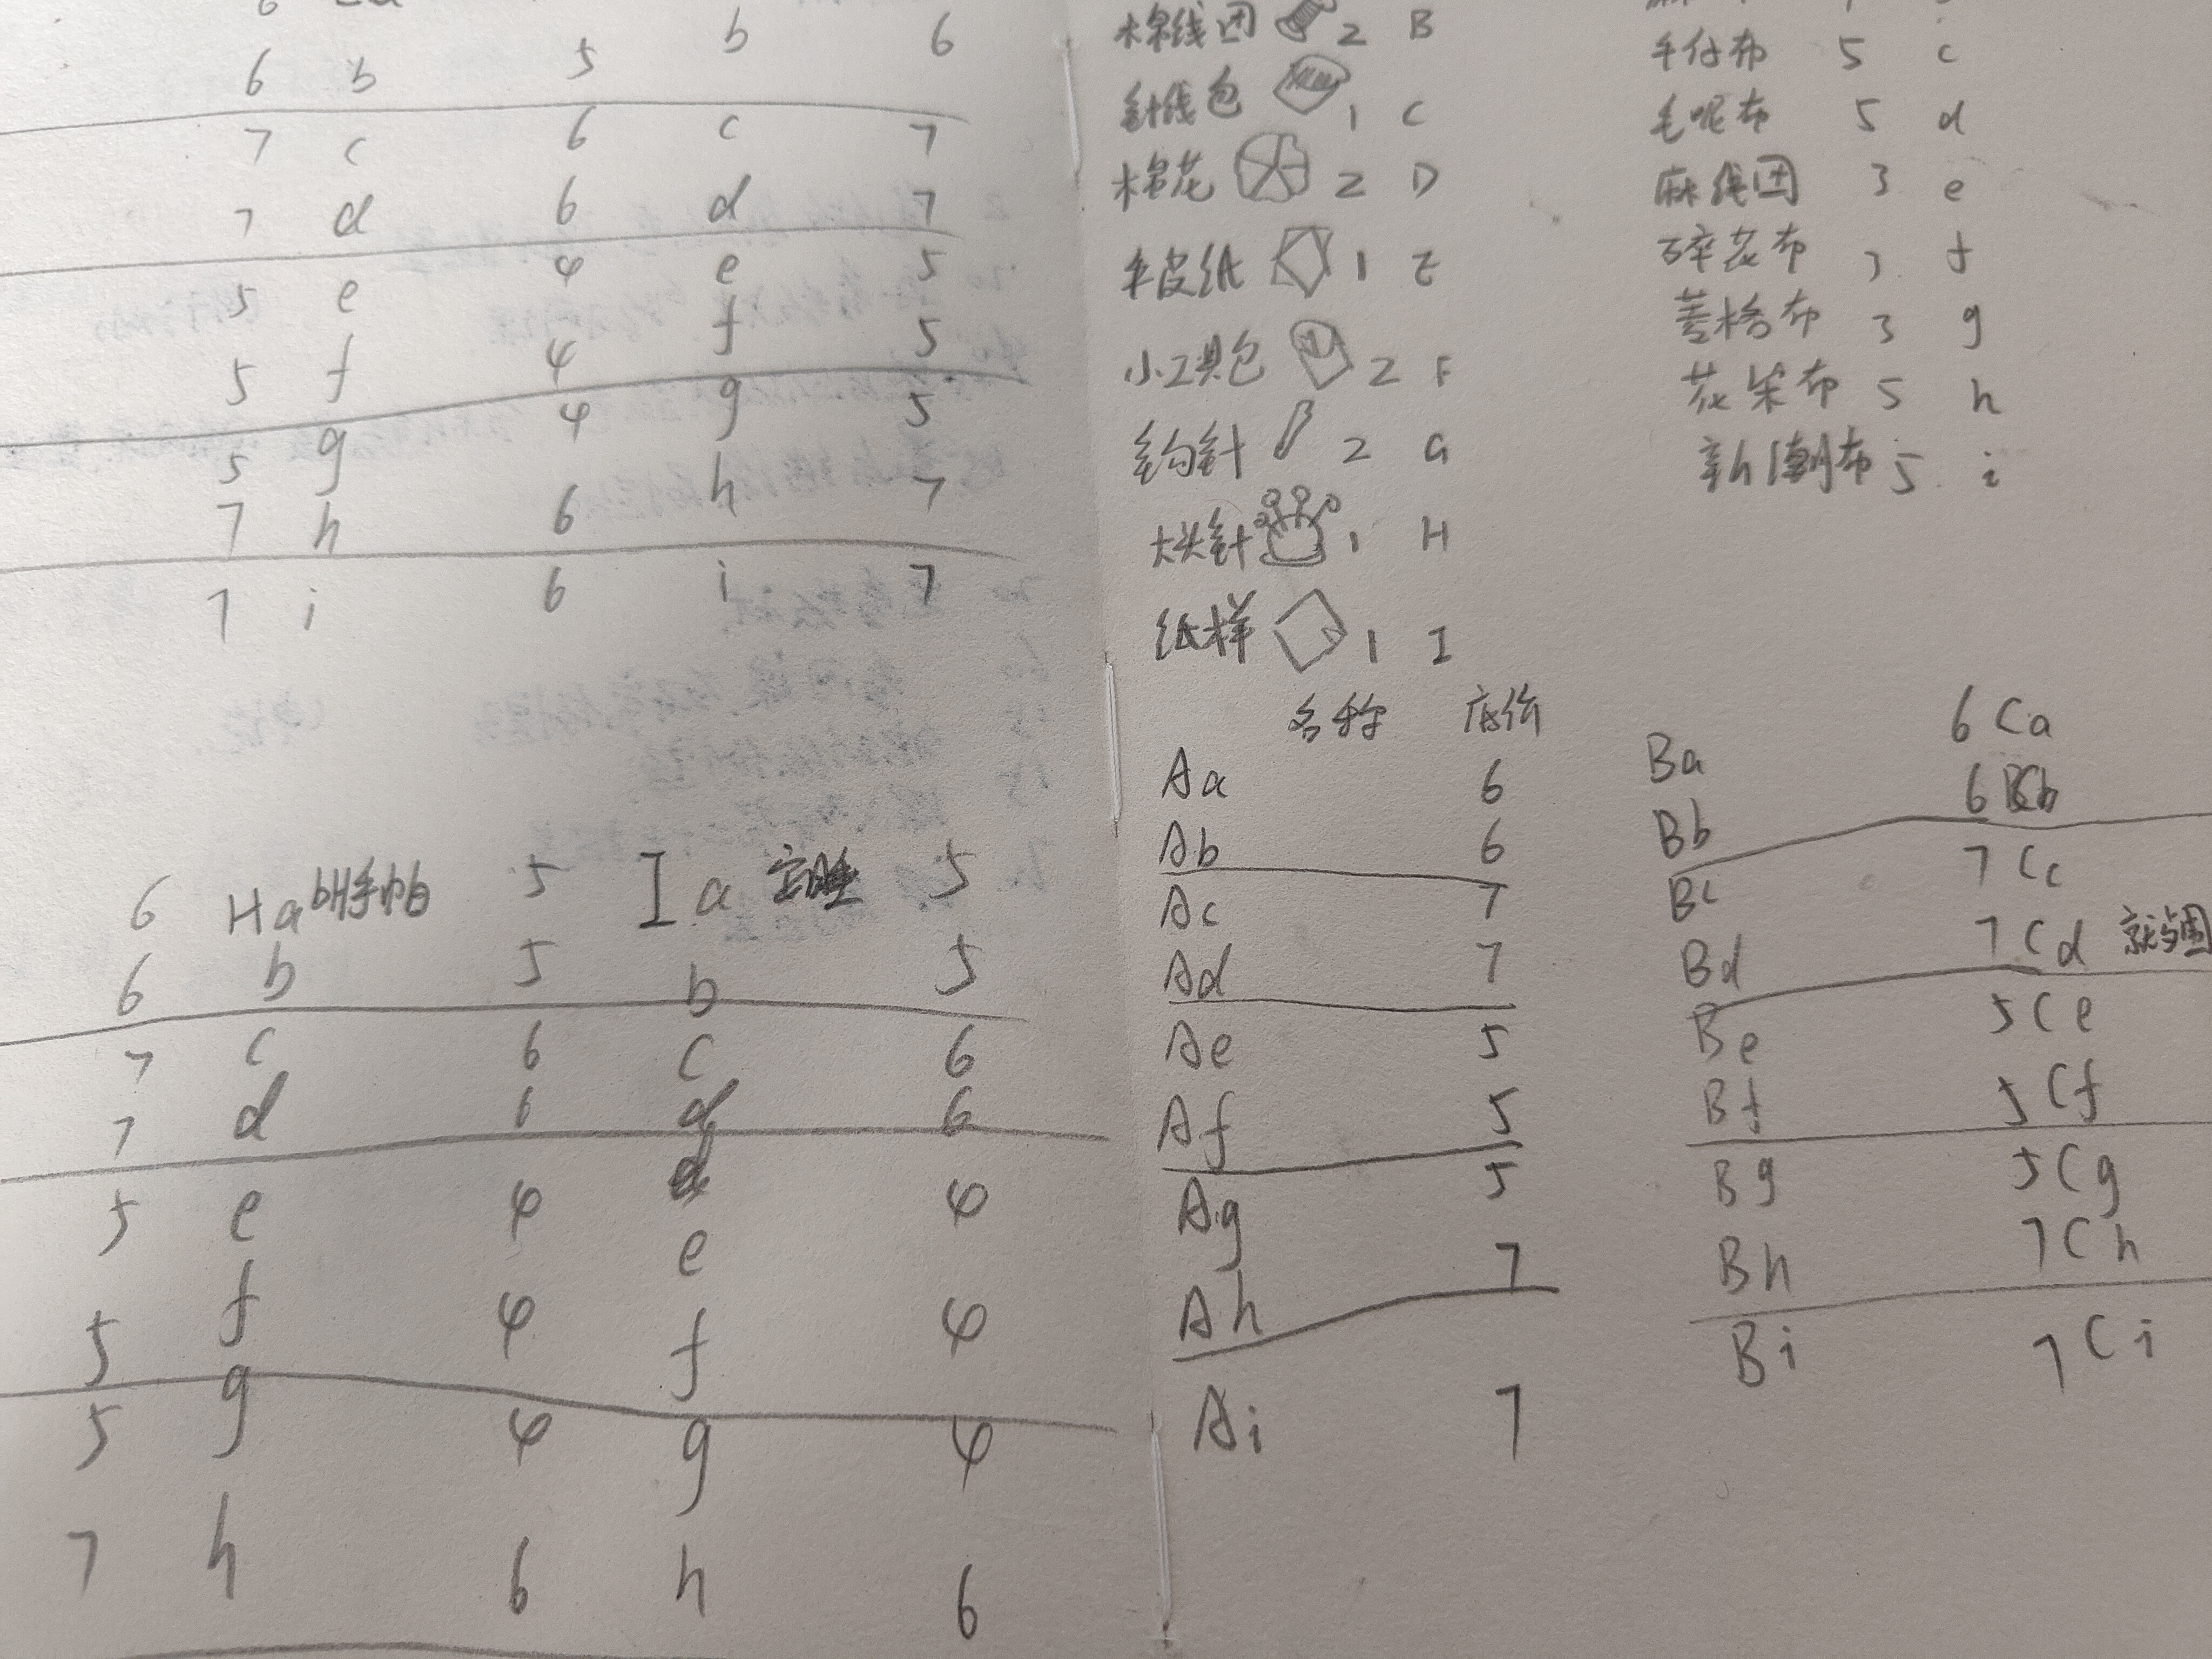 6 b 5 b 6
7 c 6 c 7
7 d 6 d 7
5 e 4 e 5
5 f 4 f 5
5 g 4 g 5
7 h 6 h 7
7 i 6 i 7
6 Ha bH手帕 5 I a 5
6 b 5 b 5
7 c 6 c 6
7 d 6 d 6
5 e 4 e 4
5 f 4 f 4
5 g 4 g 4
7 h 6 h 6
棉线团 2 B
针线包 1 C
棉花 2 D
羊皮纸 1 E
小工具包 2 F
钩针 2 G
大头针 1 H
纸样 1 I
布 5 c
毛呢布 5 d
麻线团 3 e
碎花布 3 f
格布 3 g
花朵布 5 h
新潮布 5 i
名称 底价
Aa 6 Ba 6 Ca
Ab 6 Bb 6 Cb
Ac 7 Bc 7 Cc
Ad 7 Bd 7 Cd
Ae 5 Be 5 Ce
Af 5 Bf 5 Cf
Ag 5 Bg 5 Cg
Ah 7 Bh 7 Ch
Ai 7 Bi 7 Ci